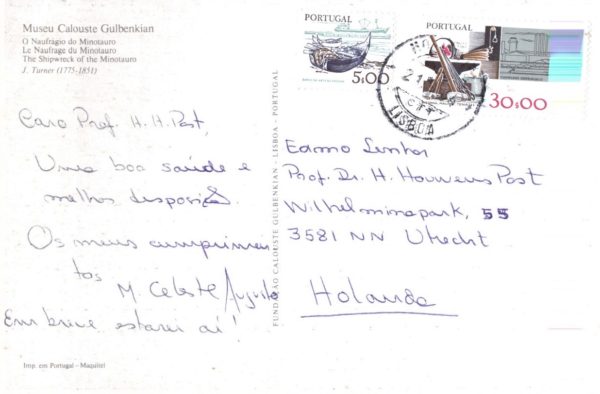 Museu Calouste Gulbenkian
O Naufrágio do Minotauro
Le Naufrage du Minotauro
The Shipwreck of the Minotauro
J. Turner (1775-1851)
Caro Prof. H. H. Post,
Uma boa saúde e
melhor disposição.
Os meus cumprimen
tos
M. Celeste Augusto
Em breve estarei aí!
Imp. em Portugal – Maquitel
FUNDAÇÃO CALOUSTE GULBENKIAN - LISBOA - PORTUGAL
PORTUGAL
5$00
PORTUGAL
30$00
21
CTT
LISBOA
Exmo Senhor
Prof. Dr. H. Houwens Post
Wilhelminapark, 55
3581 NN Utrecht
Holanda